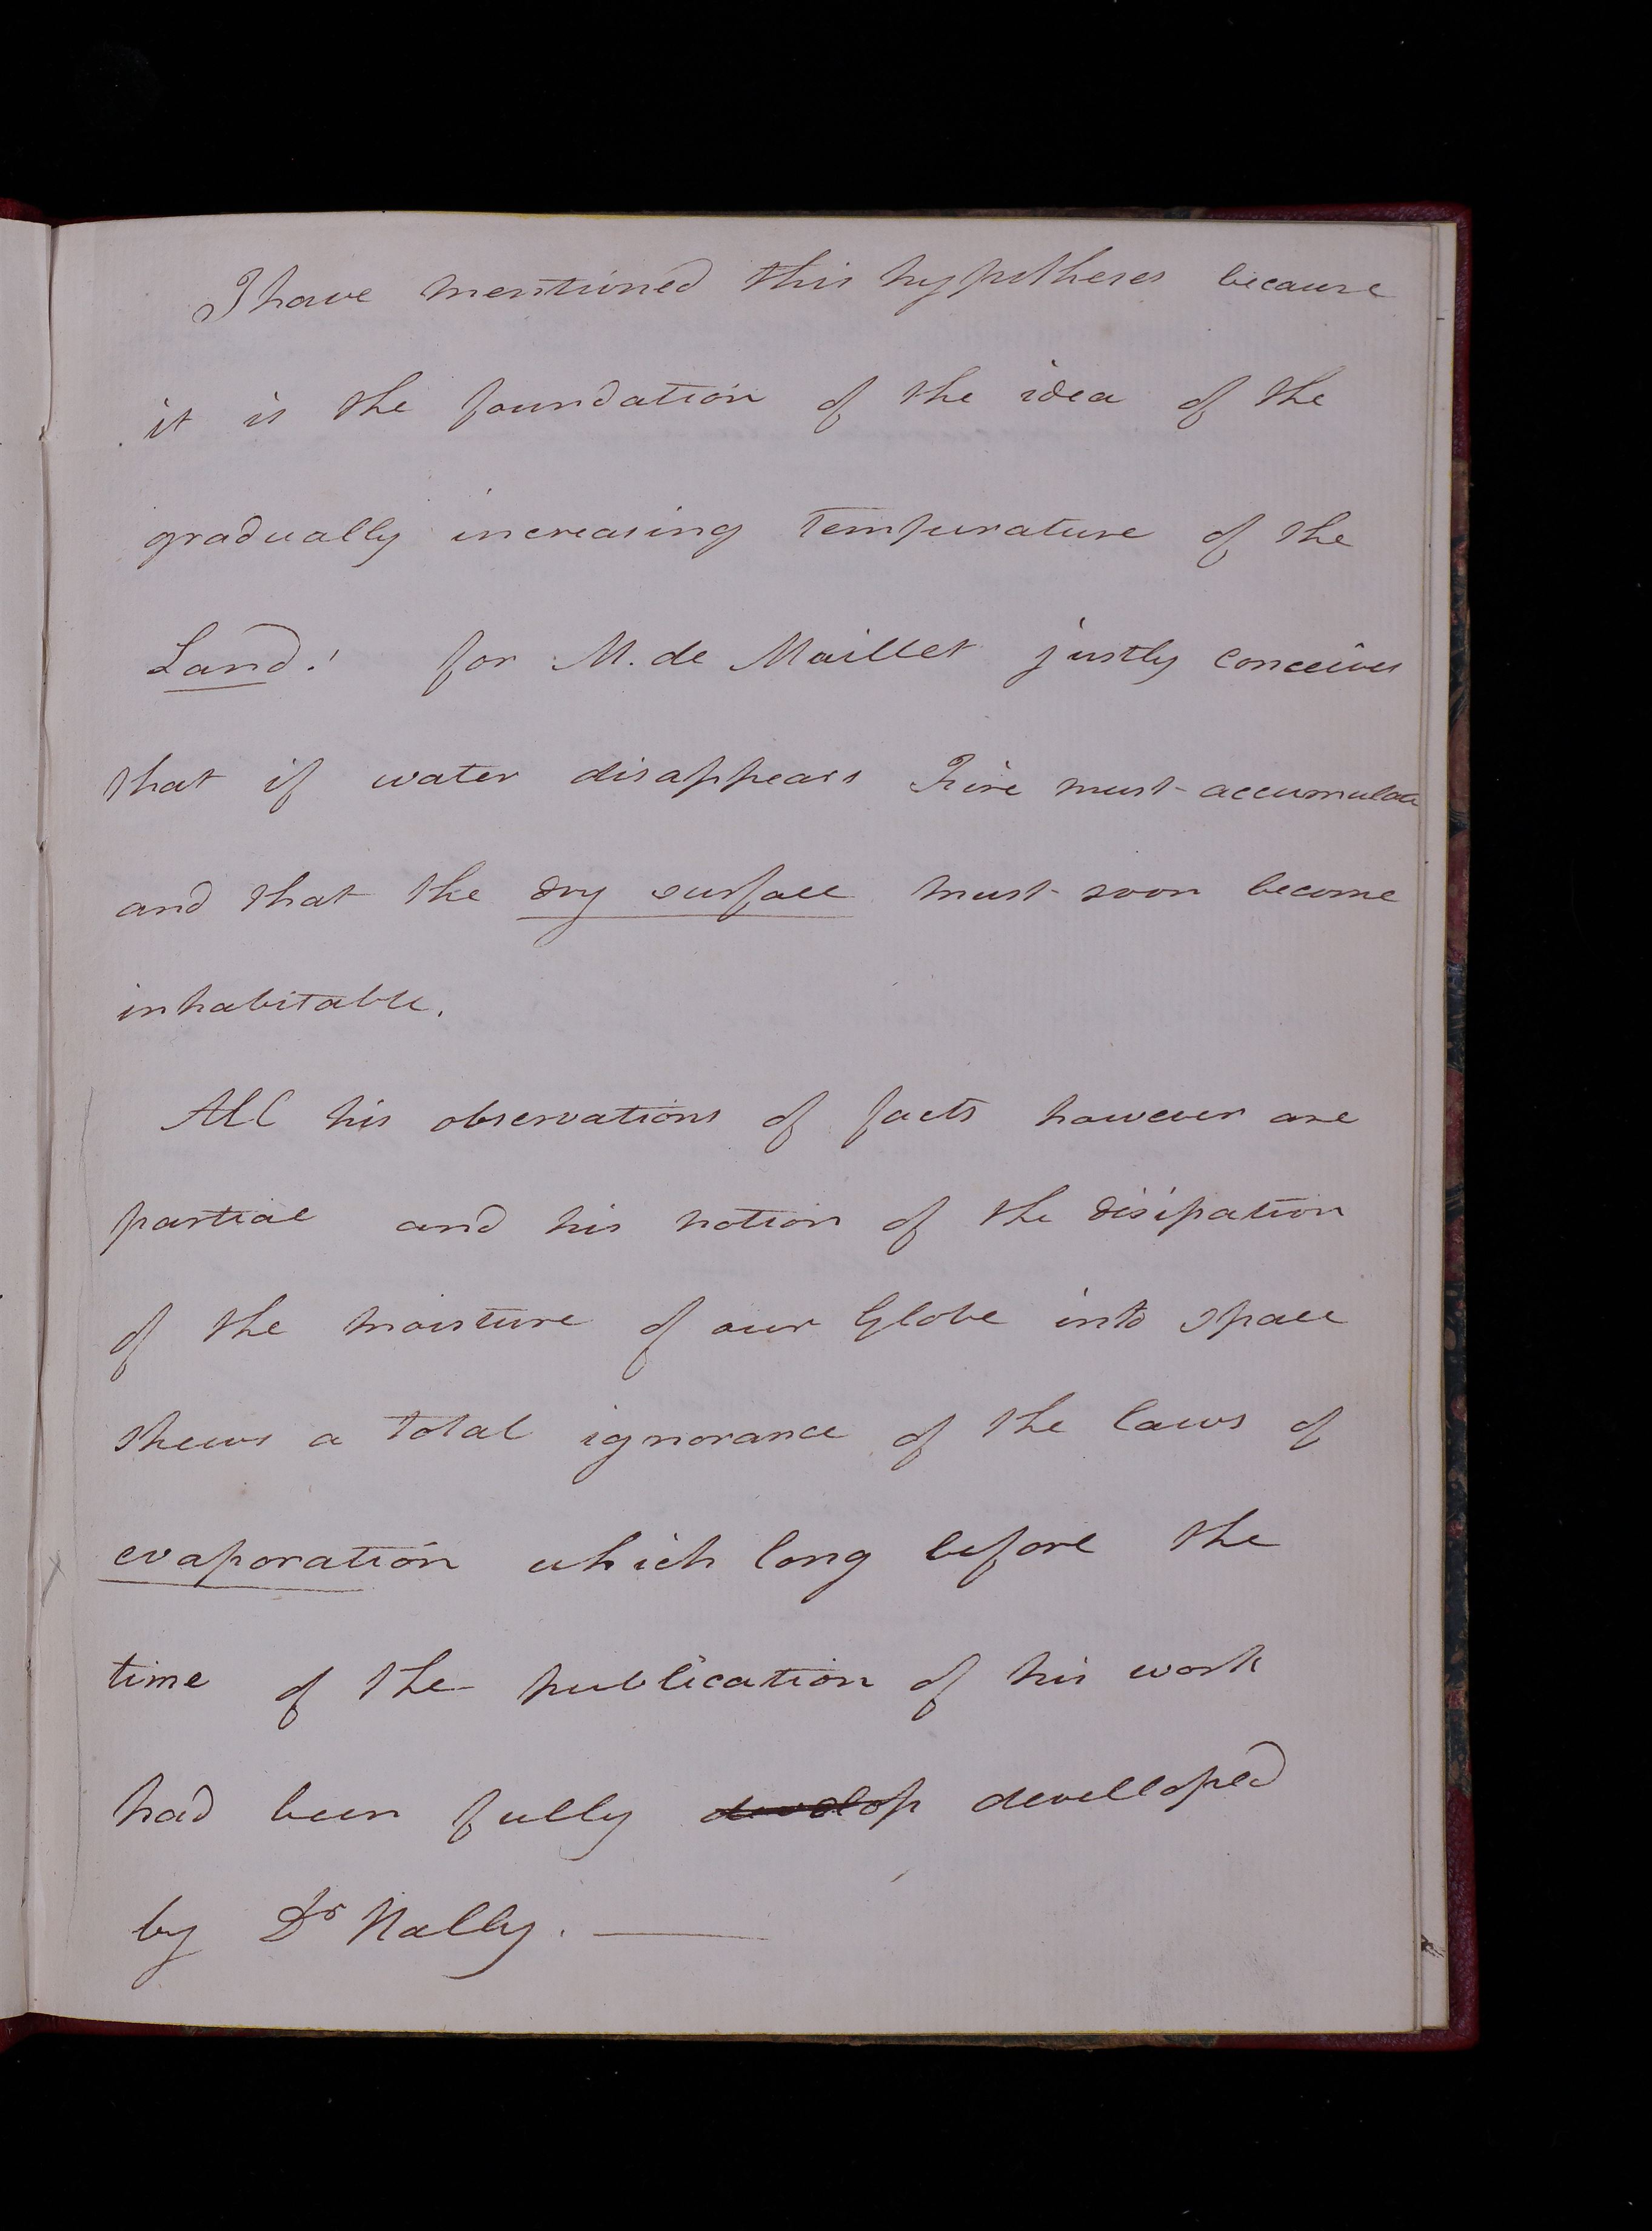 I have mentioned this hypotheses because
it is the foundation of the idea of the
gradually increasing temperature of the
Land! for M. de Maillet justly conceives
that if water disappears Fire must accumulate
and that the dry surface must soon become
inhabitable.
All his observations of facts however are
partial and his notion of the disipation
of the moisture of our Globe into space
shews a total ignorance of the laws of
evaporation which long before the
time of the publication of his work
had been fully develop develloped
by Dr Hally. —